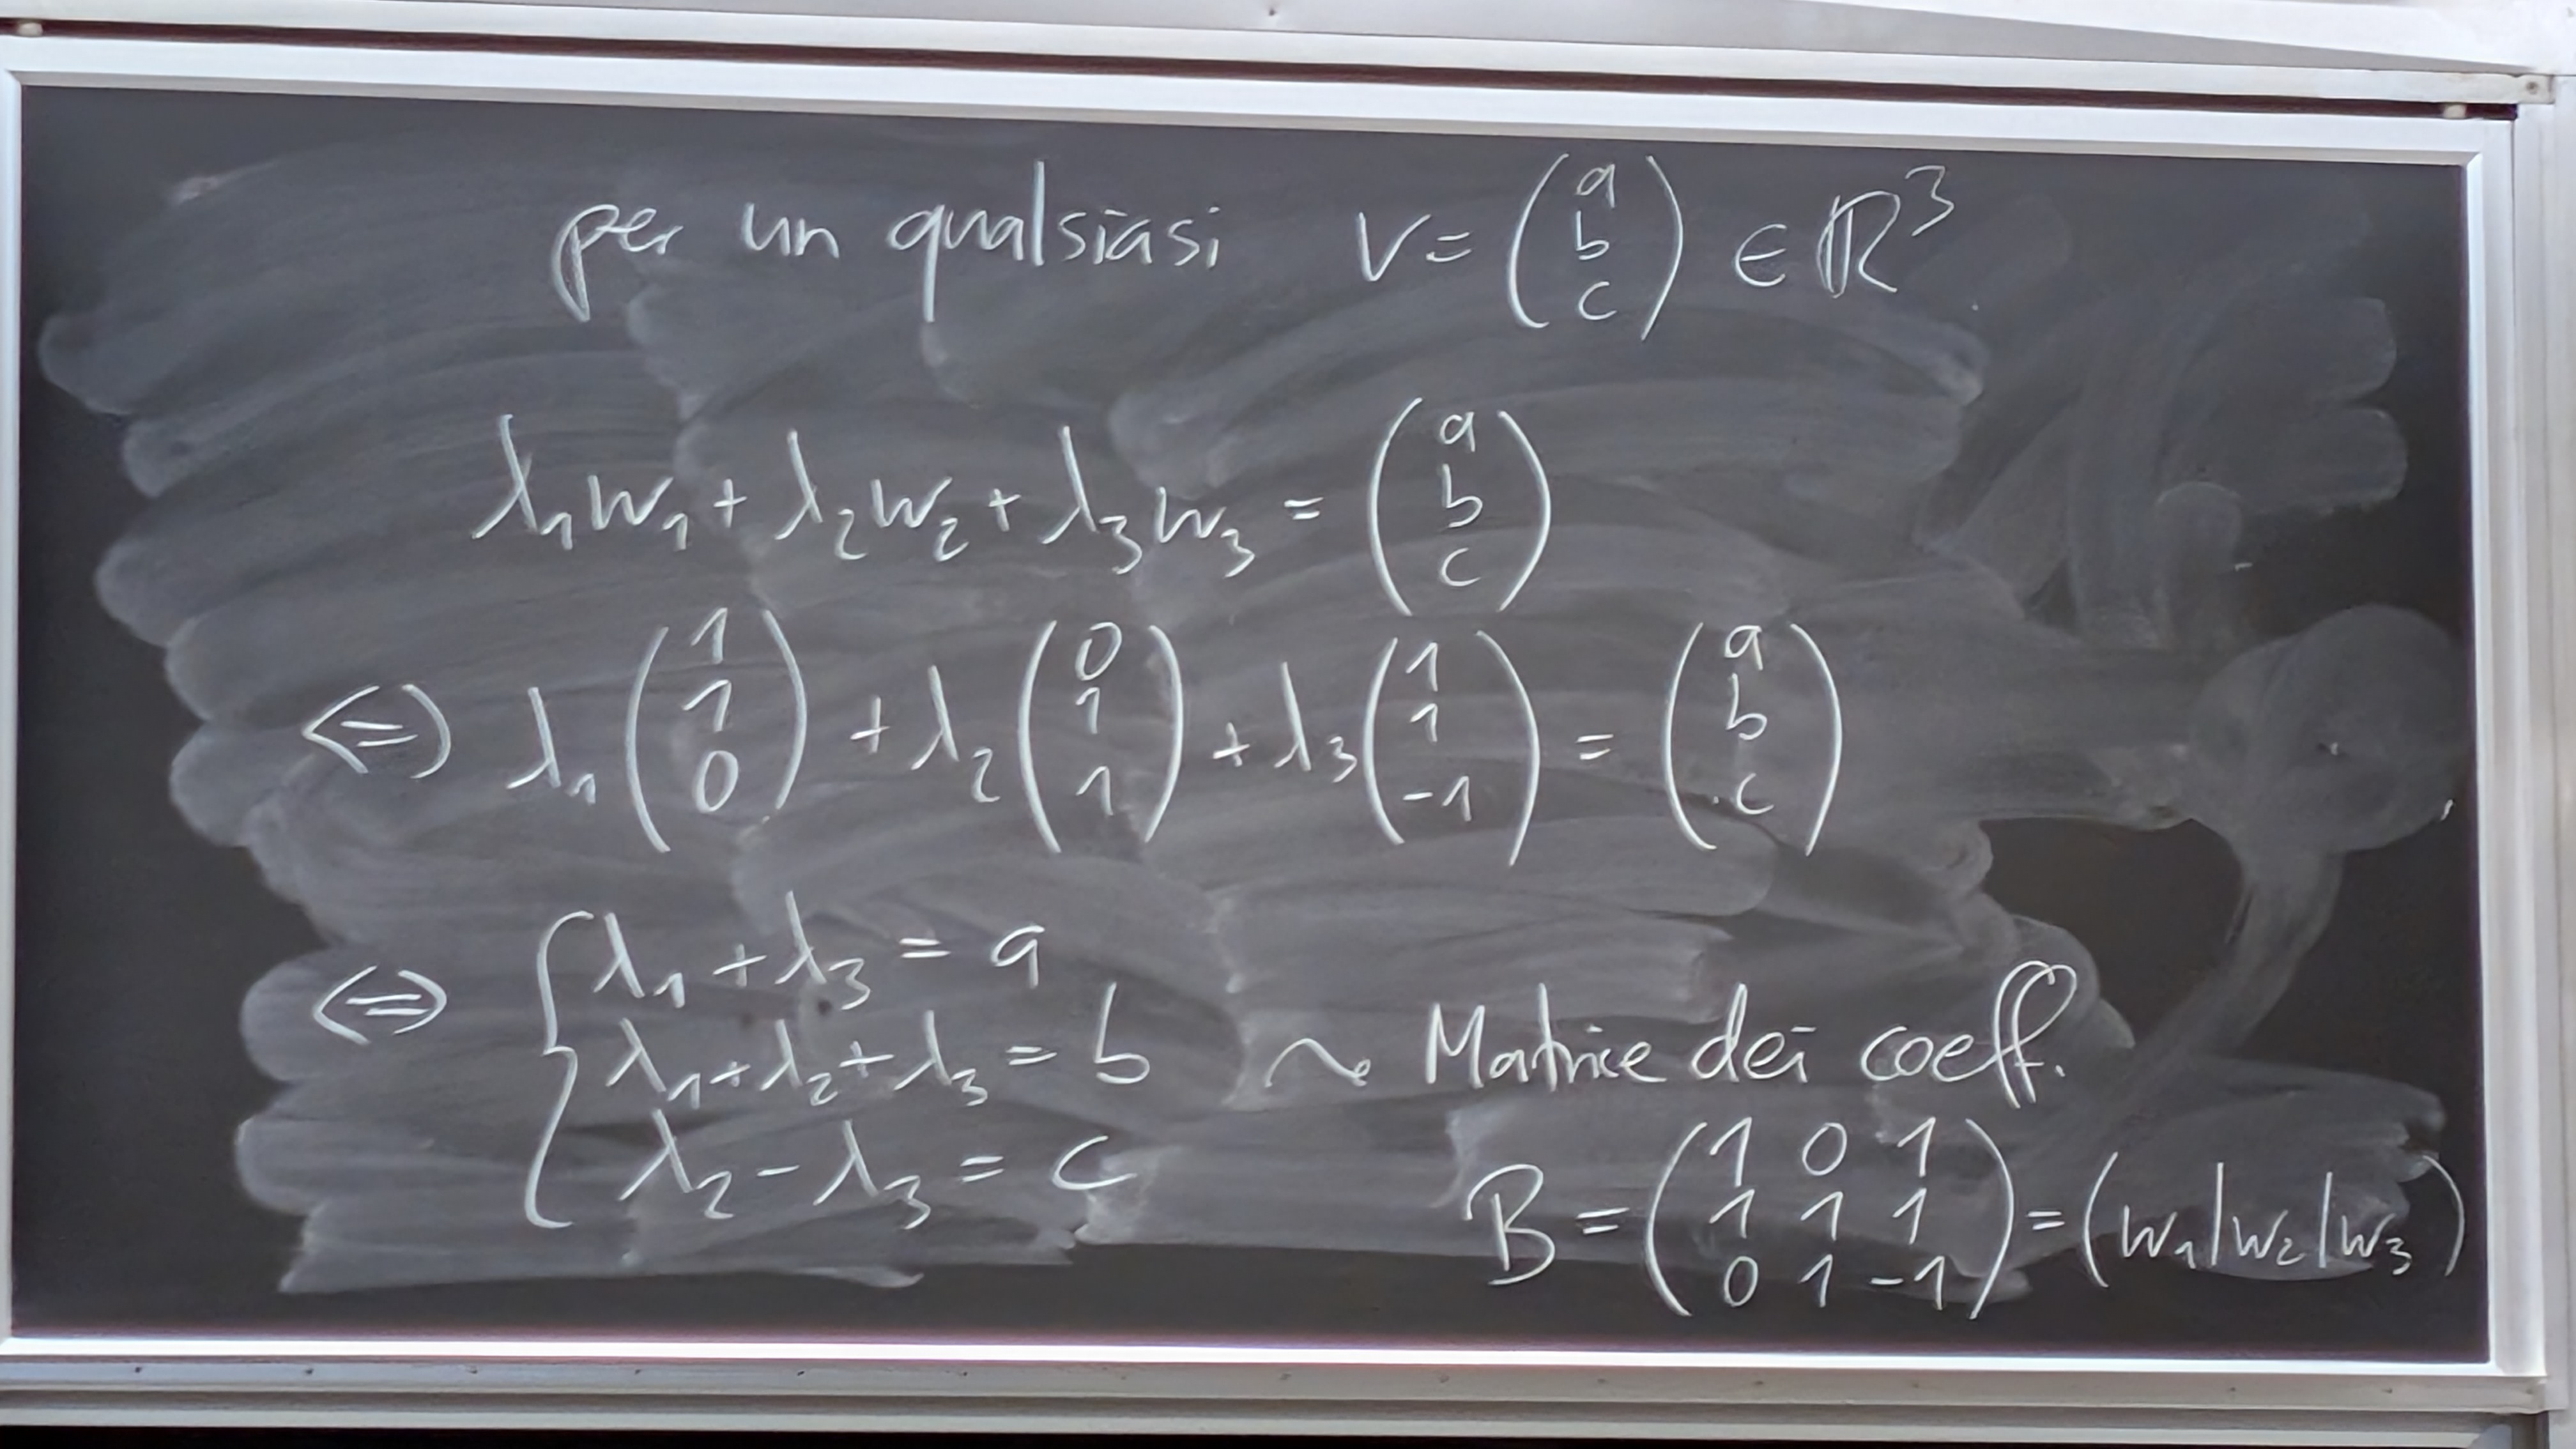 per un qualsiasi v = (a b c) ∈ ℝ³
λ₁w₁ + λ₂w₂ + λ₃w₃ = (a b c)
⇔ λ₁(1 1 0) + λ₂(0 1 1) + λ₃(1 1 -1) = (a b c)
⇔ { λ₁ + λ₃ = a
λ₁ + λ₂ + λ₃ = b ~ Matrice dei coeff.
λ₂ - λ₃ = c
B = (1 0 1
1 1 1
0 1 -1) = (w₁|w₂|w₃)